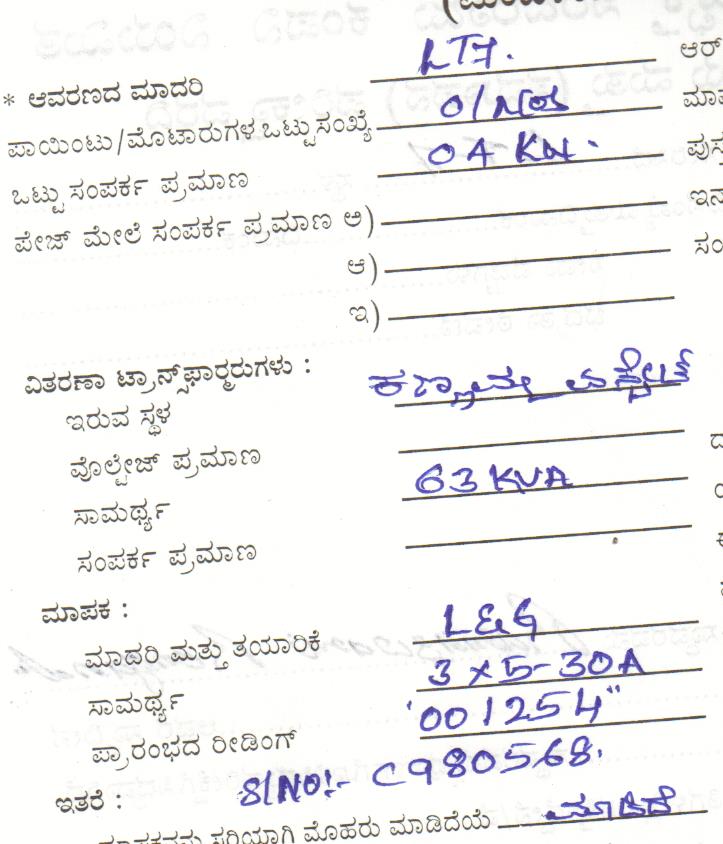 LT7. ಆರ್
* ಆವರಣದ ಮಾದರಿ
ಪಾಯಿಂಟು/ಮೊಟಾರುಗಳ ಒಟ್ಟು ಸಂಖ್ಯೆ 01 Nos ಮಾ
ಒಟ್ಟು ಸಂಪರ್ಕ ಪ್ರಮಾಣ 04 KW. ಪುಸ್ತ
ಪೇಜ್ ಮೇಲೆ ಸಂಪರ್ಕ ಪ್ರಮಾಣ ಅ) ಇನ
ಆ) ಸಂ
ಇ)
ವಿತರಣಾ ಟ್ರಾನ್ಸ್‌ಫಾರ್‍ಮರುಗಳು :
ಇರುವ ಸ್ಥಳ
ವೊಲ್ಟೇಜ್ ಪ್ರಮಾಣ
ಸಾಮರ್ಥ್ಯ 63 KVA
ಸಂಪರ್ಕ ಪ್ರಮಾಣ
ಮಾಪಕ :
ಮಾದರಿ ಮತ್ತು ತಯಾರಿಕೆ L&G
ಸಾಮರ್ಥ್ಯ 3 x 5-30A
ಪ್ರಾರಂಭದ ರೀಡಿಂಗ್ '001254"
ಇತರೆ : Sl NO:- C980568.
ಮಾಪಕವನ್ನು ಸರಿಯಾಗಿ ಮೊಹರು ಮಾಡಿದೆಯೆ ಮಾಡಿದೆ